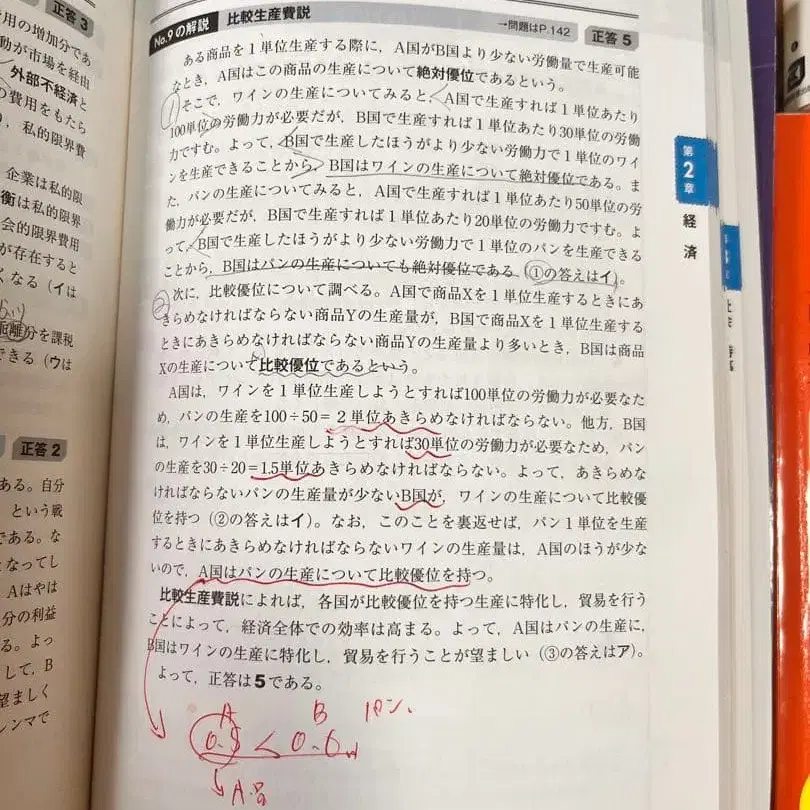 正答3
用の増加分であ
動が市場を経由
外部不経済と
の費用をもたら
り，私的限界費
企業は私的限
衡は私的限界
会的限界費用
が存在すると
くなる（イは
距離分を課税
できる（ウは
正答2
ある。自分
という戦
である。な
となってし
Aはやは
分の利益
る。よっ
して，B
望ましく
レンマで
No.9の解説 比較生産費説 →問題はP.142 正答5
ある商品を1単位生産する際に，A国がB国より少ない労働量で生産可能
なとき，A国はこの商品の生産について絶対優位であるという。
① そこで，ワインの生産についてみると，A国で生産すれば1単位あたり
100単位の労働力が必要だが，B国で生産すれば1単位あたり30単位の労働
力ですむ。よって，B国で生産したほうがより少ない労働力で1単位のワイ
ンを生産できることから，B国はワインの生産について絶対優位である。ま
た，パンの生産についてみると，A国で生産すれば1単位あたり50単位の労
働力が必要だが，B国で生産すれば1単位あたり20単位の労働力ですむ。よ
って，B国で生産したほうがより少ない労働力で1単位のパンを生産できる
ことから，B国はパンの生産についても絶対優位である（①の答えはイ）。
② 次に，比較優位について調べる。A国で商品Xを1単位生産するときにあ
きらめなければならない商品Yの生産量が，B国で商品Xを1単位生産する
ときにあきらめなければならない商品Yの生産量より多いとき，B国は商品
Xの生産について比較優位であるという。
A国は，ワインを1単位生産しようとすれば100単位の労働力が必要なた
め，パンの生産を100÷50＝2単位あきらめなければならない。他方，B国
は，ワインを1単位生産しようとすれば30単位の労働力が必要なため，パン
の生産を30÷20＝1.5単位あきらめなければならない。よって，あきらめな
ければならないパンの生産量が少ないB国が，ワインの生産について比較優
位を持つ（②の答えはイ）。なお，このことを裏返せば，パン1単位を生産
するときにあきらめなければならないワインの生産量は，A国のほうが少な
いので，A国はパンの生産について比較優位を持つ。
比較生産費説によれば，各国が比較優位を持つ生産に特化し，貿易を行う
ことによって，経済全体での効率は高まる。よって，A国はパンの生産に，
B国はワインの生産に特化し，貿易を行うことが望ましい（③の答えはア）。
よって，正答は5である。
A B パン、
0.5 < 0.6
A国
第2章
経済